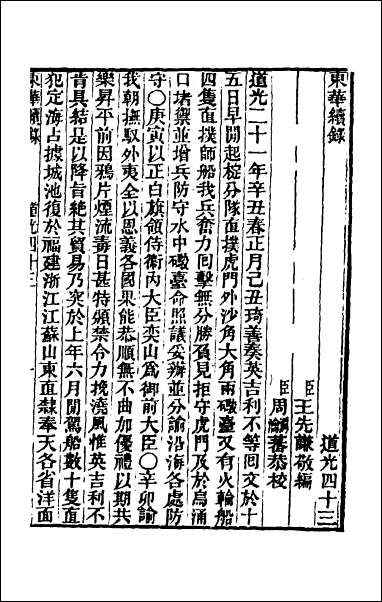 東華續錄
道光四十三
臣王先謙敬編
臣周瀹蕃恭校
道光二十一年辛丑春正月己丑琦善奏英吉利不等回文於十
五日早開起椗分隊直撲虎門外沙角大角兩礮臺又有火輪船
四隻直撲師船我兵奮力回擊無分勝負見拒守虎門及於烏涌
口堵禦並增兵防守水中礮臺命照議妥辦並分諭沿海各處防
守〇庚寅以正白旗領侍衛內大臣奕山為御前大臣〇辛卯諭
我朝撫馭外夷全以恩義各國果能恭順無不曲加優禮以期共
樂昇平前因鴉片煙流毒日甚特頒禁令力挽澆風惟英吉利不
肯具結是以降旨絕其貿易乃突於上年六月間駕船數十隻直
犯定海占據城池復於福建浙江江蘇山東直隸奉天各省洋面
東華續錄
道光四十三
一